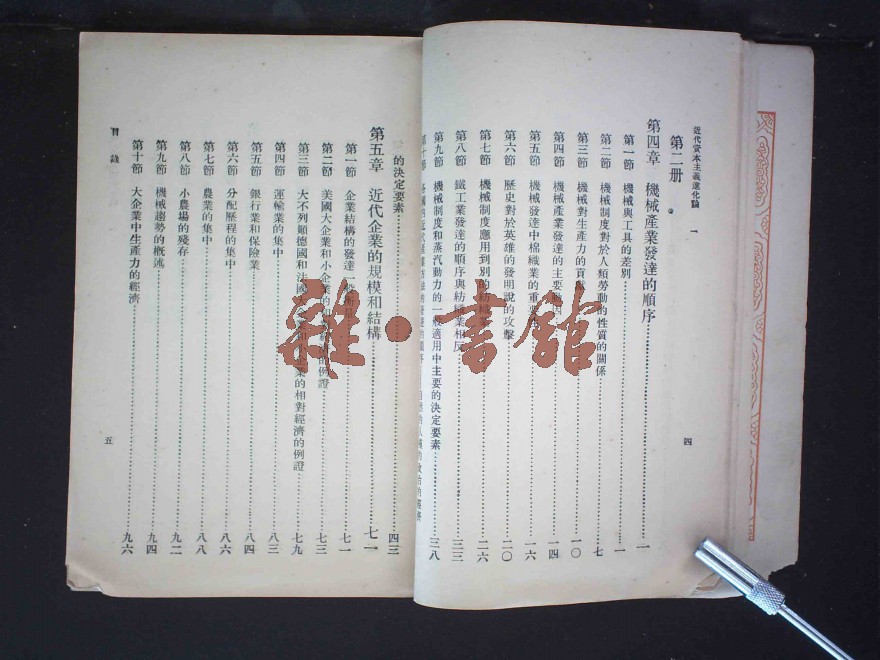 近代資本主義進化論 一
四
第二册
第四章 機械產業發達的順序 一
第一節 機械與工具的差別 一
第二節 機械制度對於人類勞動的性質的關係 七
第三節 機械對生產力的貢獻 一〇
第四節 機械產業發達的主要 因 一四
第五節 機械發達中棉織業的重要 一六
第六節 歷史對於英雄的發明說的攻擊 二〇
第七節 機械制度應用到別的紡織業 二六
第八節 鐵工業發達的順序與紡織業相反
第九節 機械動力和蒸汽動力的一般適用中主要的決定要素 三八
第十節
的決定要素 四三
第五章 近代企業的規模和結構 七一
第一節 企業結構的發達一般 七一
第二節 美國大企業和小企業的 的例證 七三
第三節 大不列顛德國和法國大企業和 企業的相對經濟的例證 七九
第四節 運輸業的集中 八三
第五節 銀行業和保險業 八四
第六節 分配歷程的集中 八六
第七節 農業的集中 八八
第八節 小農場的殘存 九二
第九節 機械趨勢的概述 九四
第十節 大企業中生產力的經濟 九六
目錄
五
雜·書館